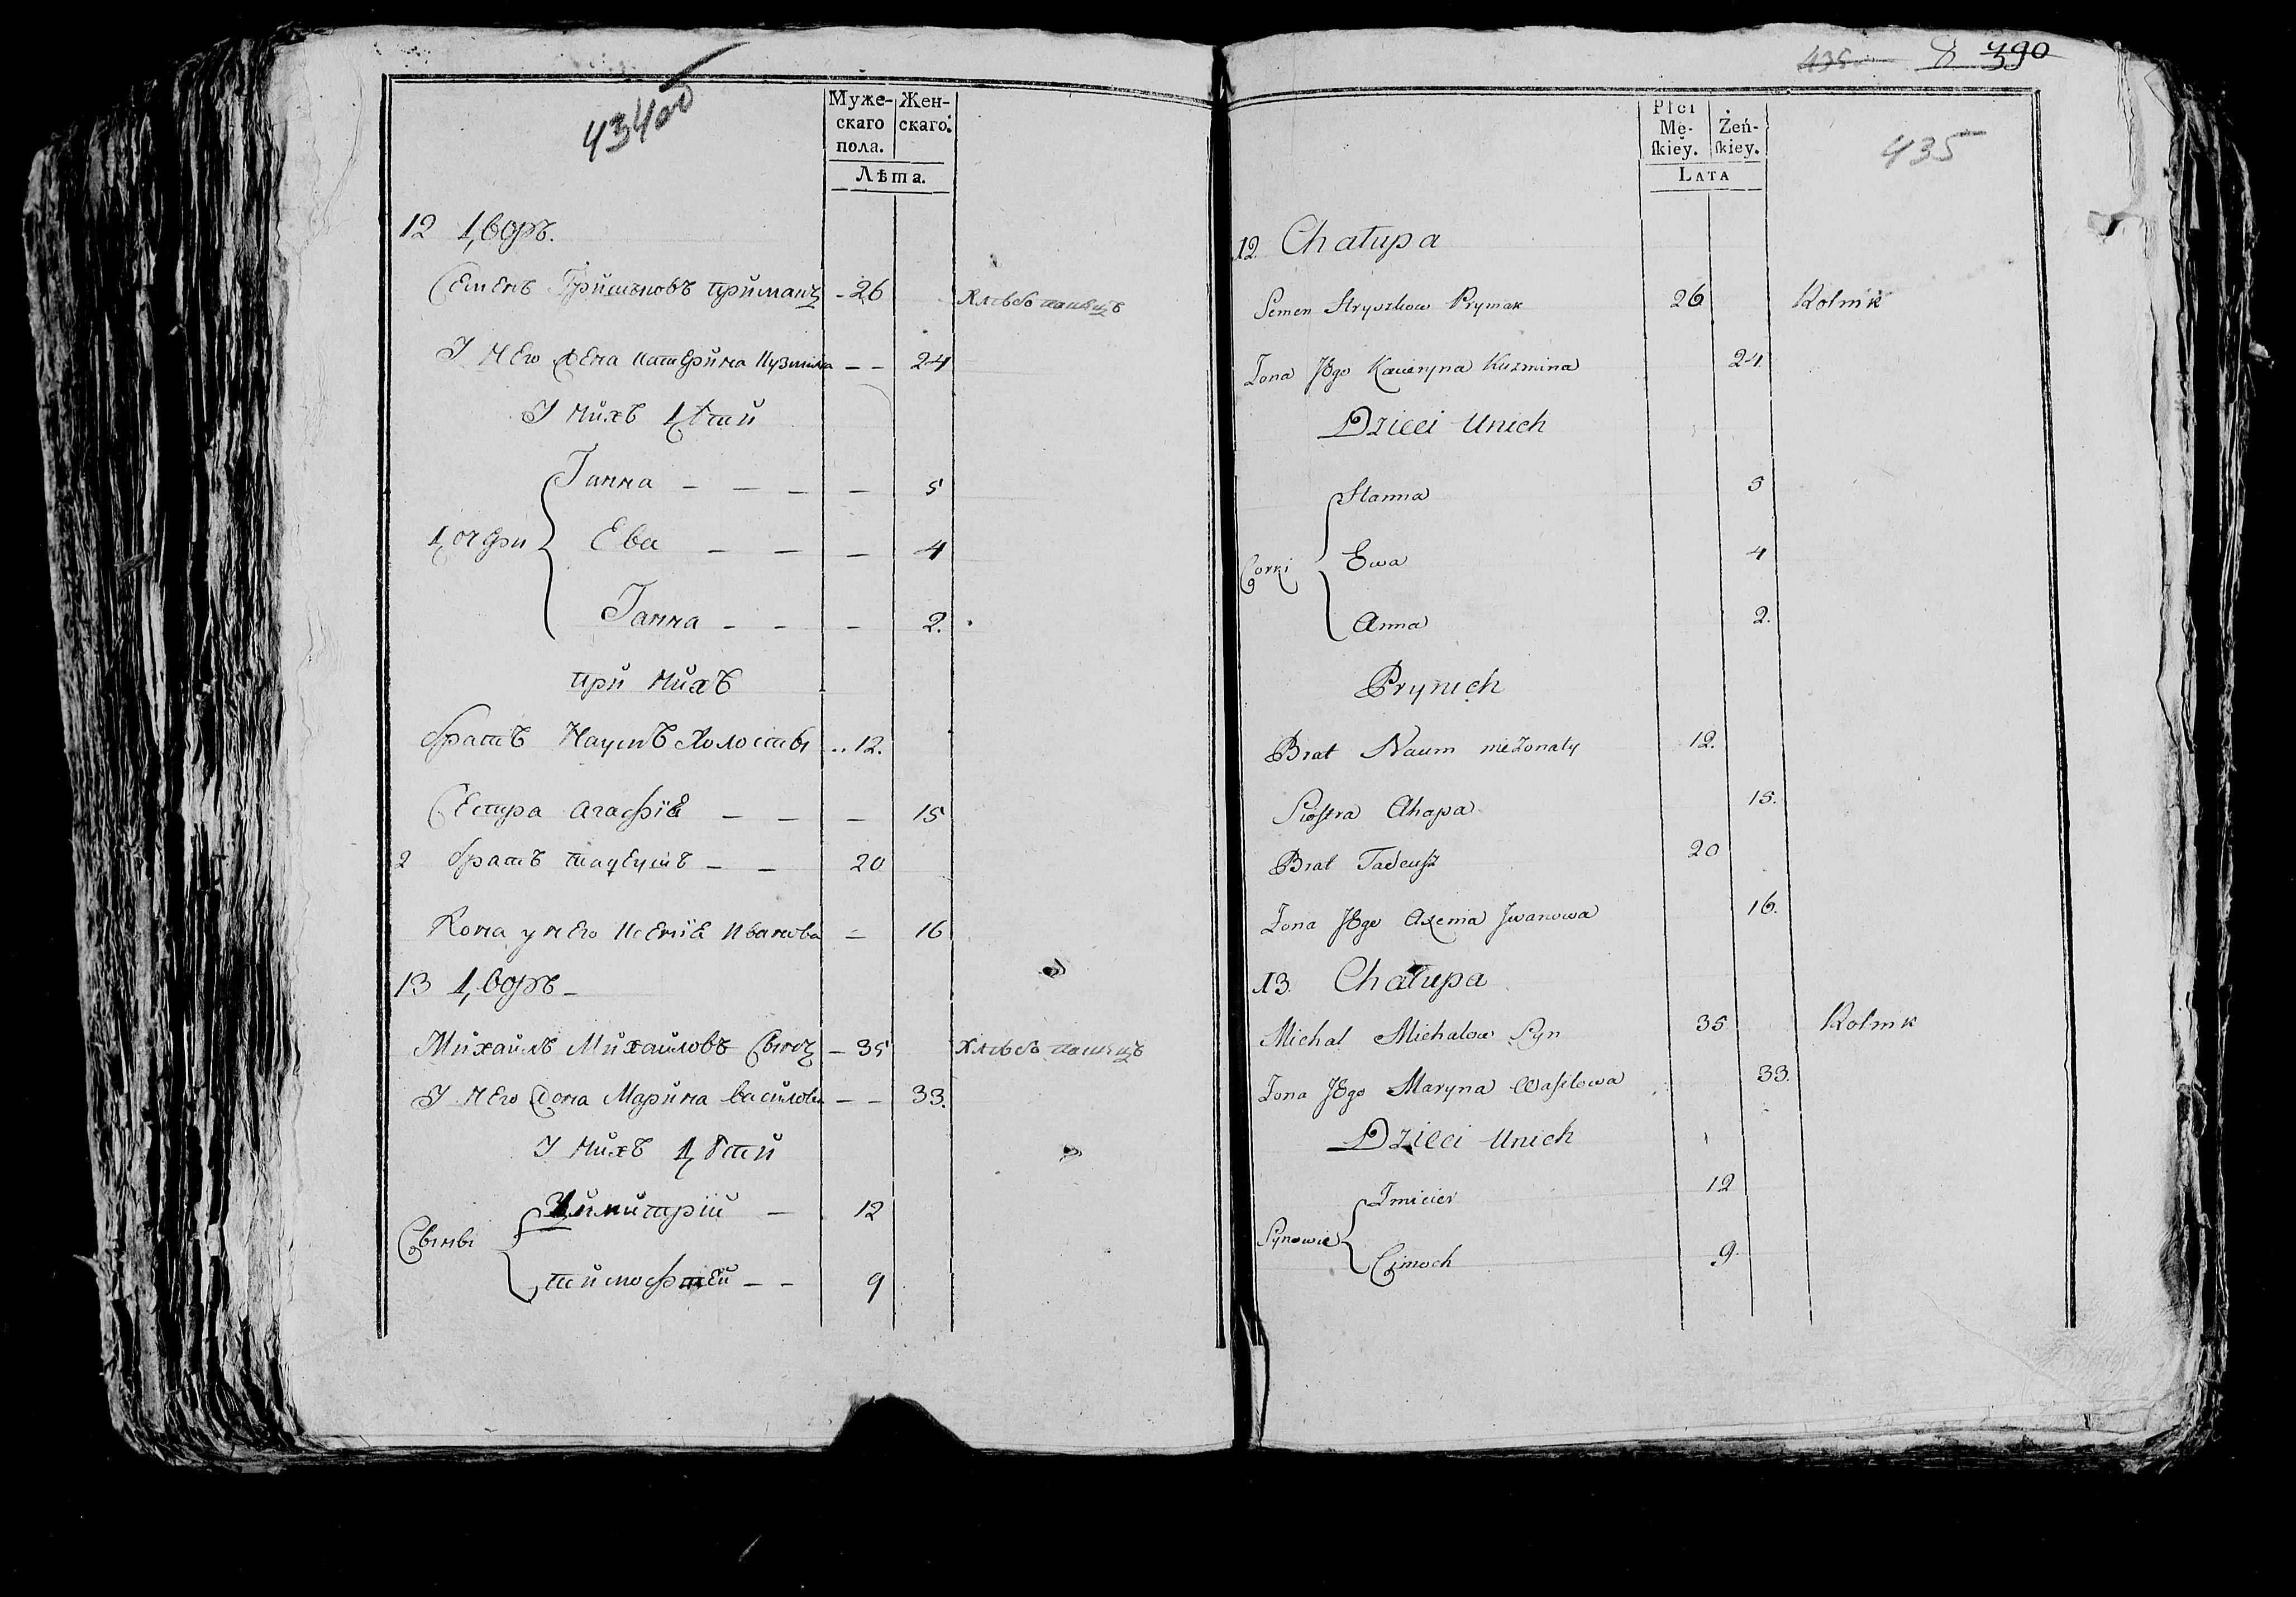 434 об
Муже-
скаго
пола.
Жен-
скаго.
Лѣта.
12 Дворъ.
Семенъ Гришковъ примакъ - 26 Хлѣбопашецъ
У него жена Катерина Кузмина — — 24
У нихъ дѣти
Ганна — — — — 5
Дочери Ева — — — 4
Ганна — — — 2.
при нихъ
братъ Наумъ холосты .. 12.
Сестра Агафія — — — 15
2 братъ тадеушъ — — 20
Жона у него Ксенія Иванова — 16
13 Дворъ —
Михаилъ Михаиловъ Сынъ — 35 Хлѣбопашецъ
У него жона Марина Василова — — 33.
У нихъ Дѣти
Димитрій — 12
Сыны
тимофтей — — 9
435 390
435
Płci
Mę-
ſkiey.
Żeń-
ſkiey.
Lata
12. Chałupa
Semen Hryszkow Prymak 26 Rolnik
Żona Jego Kateryna Kuzmina 24.
Dzieci Unich
Hanna 5
Corki Ewa 4
Anna 2.
Prynich
Brat Naum nieżonaty 12.
Siostra Ahapa 15.
Brat Tadeuſz 20
Żona Jego Axenia Jwanowa 16.
13. Chałupa
Michal Michalow Syn 35 Rolnik
Żona Jego Maryna Waſilowa 33.
Dzieci Unich
Dmicier 12
Synowie
Cimoch 9.